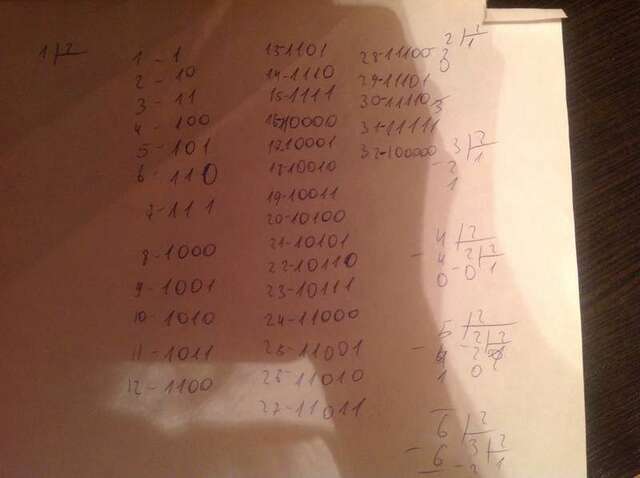 1 - 1
2 - 10
3 - 11
4 - 100
5 - 101
6 - 110
7 - 111
8 - 1000
9 - 1001
10 - 1010
11 - 1011
12 - 1100
13 1101
14 - 1110
15 - 1111
16 10000
17 10001
18 10010
19 - 10011
20 - 10100
21 - 10101
22 - 10110
23 - 10111
24 - 11000
25 - 11001
26 - 11010
27 - 11011
28 - 11100
29 - 11101
30 - 11110
31 - 11111
32 - 100000
1 | 2
2 | 2
2 1
0
3 | 2
- 2 1
1
4 | 2
- 4 2 | 2
0 - 0 1
5 | 2
- 4 2 | 2
1 0
6 | 2
- 6 3 | 2
- 2 1